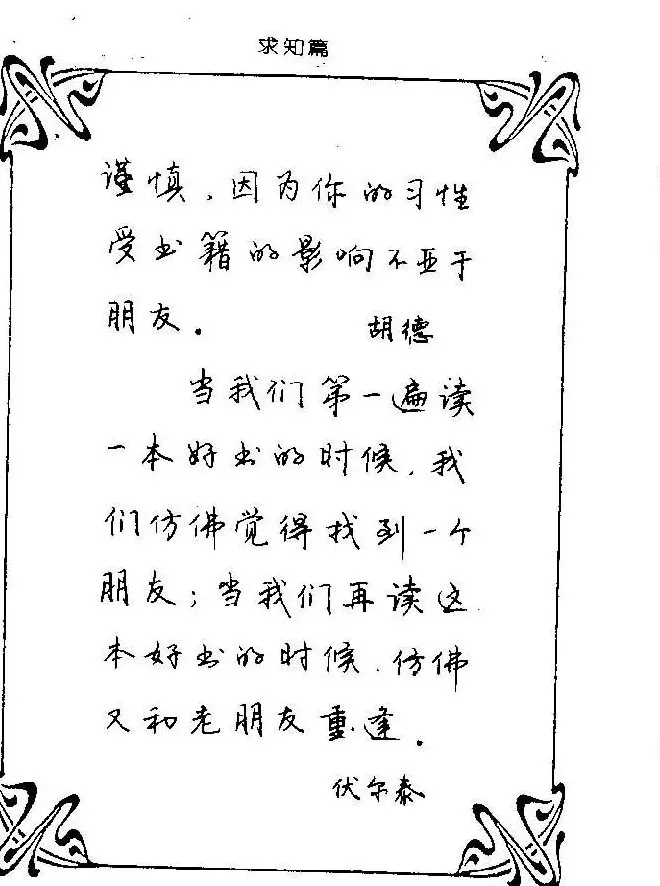 求知篇
谨慎，因为你的习性
受书籍的影响不亚于
朋友。 胡德
当我们第一遍读
一本好书的时候，我
们仿佛觉得找到一个
朋友；当我们再读这
本好书的时候，仿佛
又和老朋友重逢。
伏尔泰